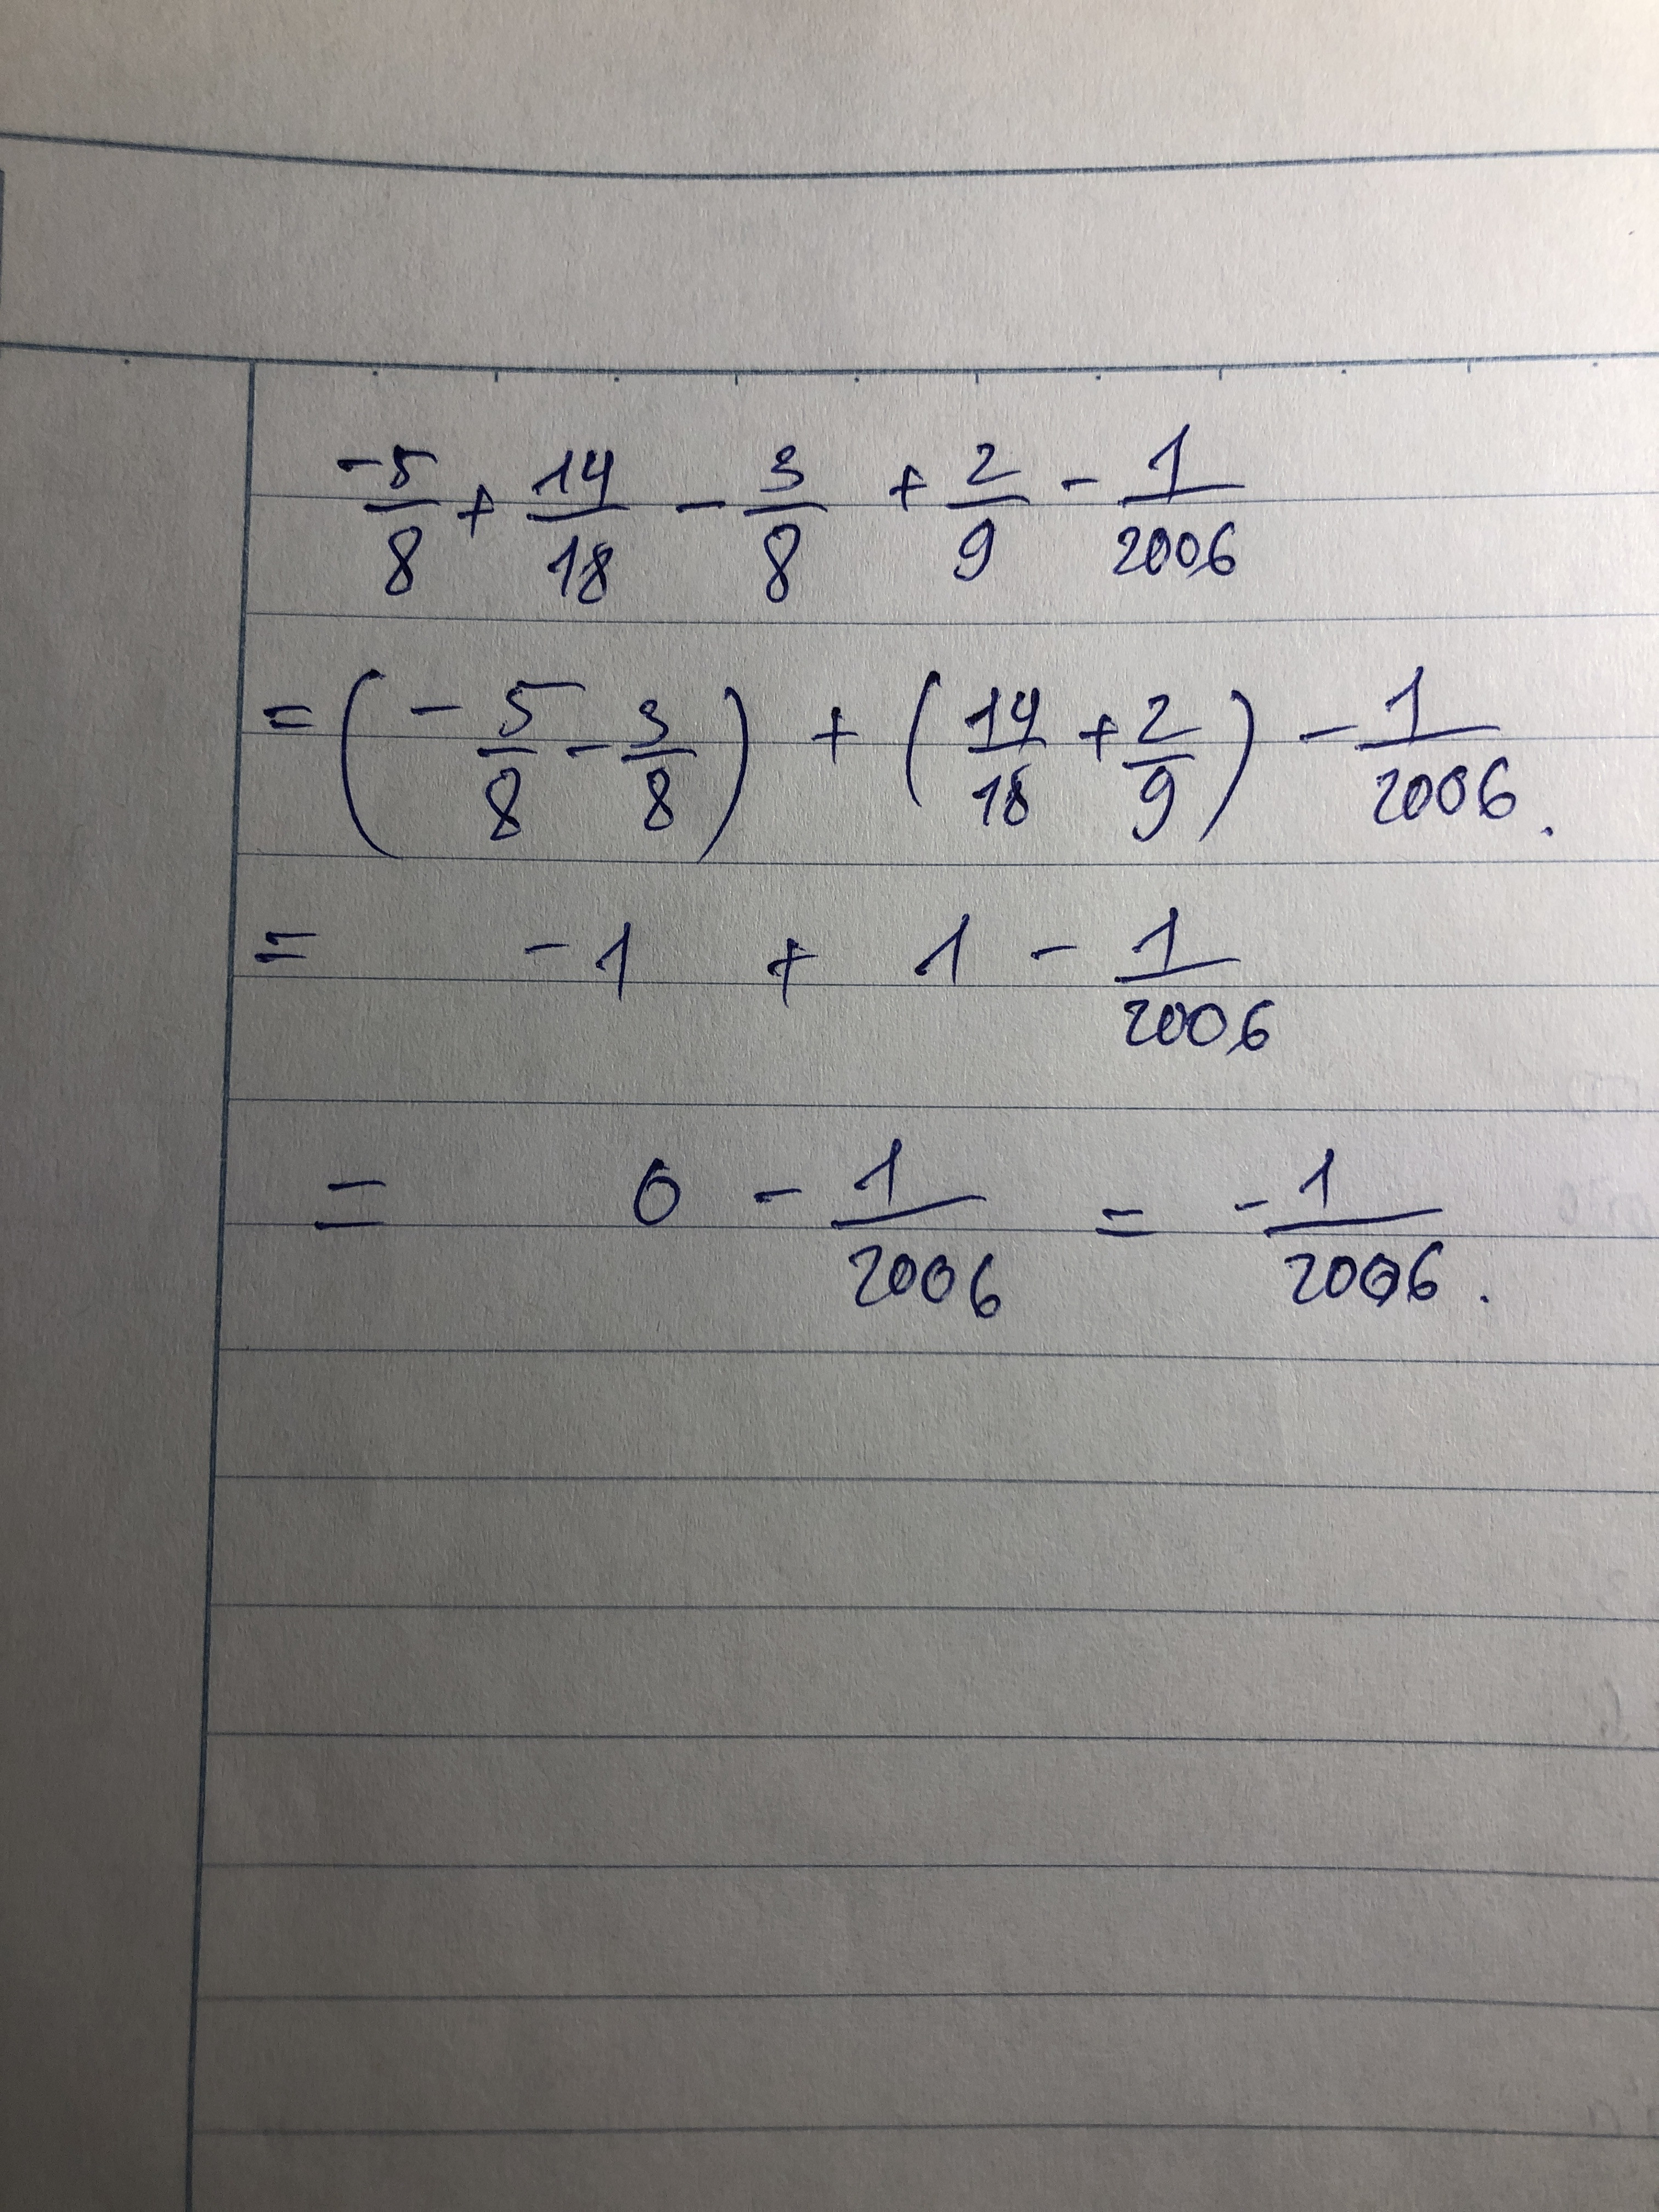 -5/8 + 14/18 - 3/8 + 2/9 - 1/2006
= (-5/8 - 3/8) + (14/18 + 2/9) - 1/2006.
= -1 + 1 - 1/2006
= 0 - 1/2006 = -1/2006.